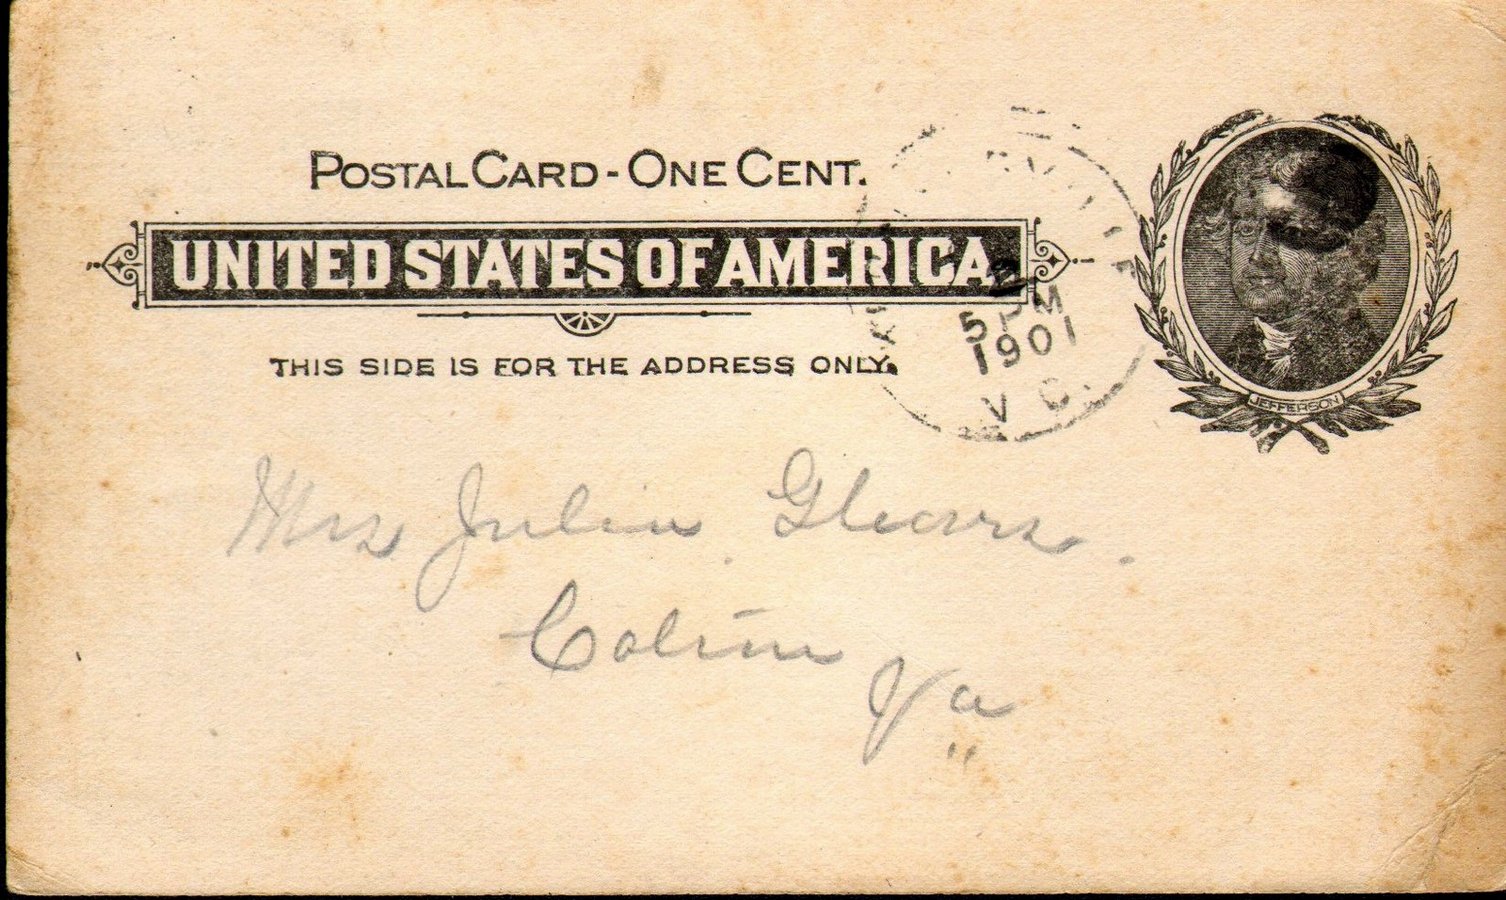 POSTAL CARD - ONE CENT.
UNITED STATES OF AMERICA.
THIS SIDE IS FOR THE ADDRESS ONLY.
5 PM
1901
JEFFERSON
Mrs Julia
Va